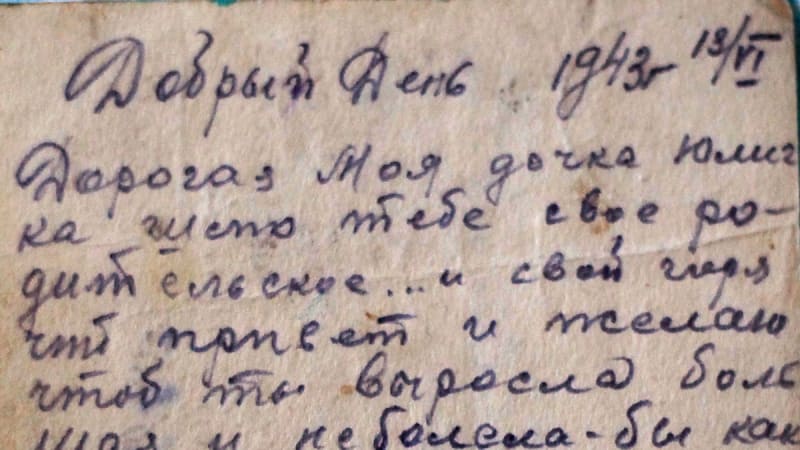 Добрый День 1943г 13/VI
Дорогая Моя дочка Юлич
ка шлю тебе свое ро-
дительское... и свой горя
чий привет и желаю
чтоб ты выросла боль
шая и неболела-бы как